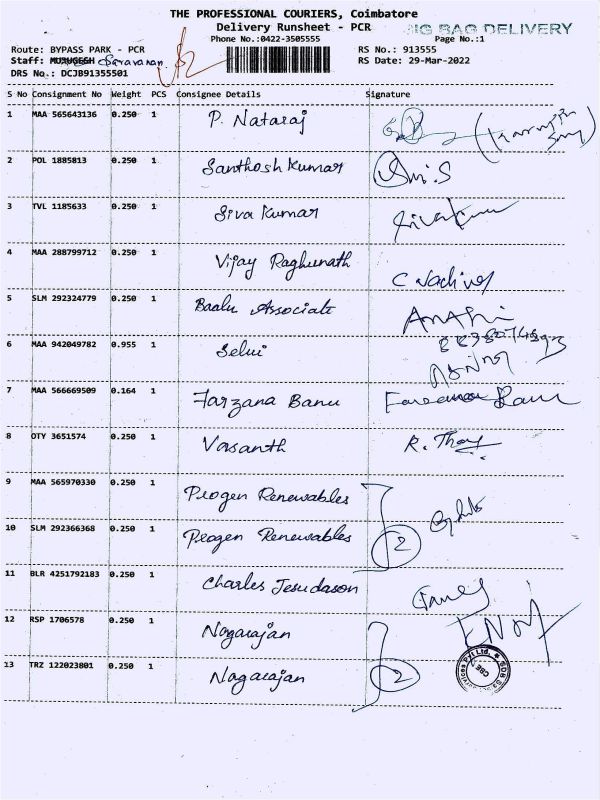 THE PROFESSIONAL COURIERS, Coimbatore
Delivery Runsheet - PCR
BIG BAG DELIVERY
Phone No.:0422-3505555
Page No.:1
Route: BYPASS PARK - PCR
RS No.: 913555
Staff: MURUGESH Saravanan
RS Date: 29-Mar-2022
DRS No.: DCJB91355501
S No Consignment No Weight PCS Consignee Details Signature
1 MAA 565643136 0.250 1 P. Nataraj
2 POL 1885813 0.250 1 Santhosh Kumar
3 TVL 1185633 0.250 1 Siva Kumar Sivakumar
4 MAA 288799712 0.250 1 Vijay Raghunath
5 SLM 292324779 0.250 1 Baalu Associate
6 MAA 942049782 0.955 1 Selvi
7 MAA 566669509 0.164 1 Farzana Banu
8 OTY 3651574 0.250 1 Vasanth
9 MAA 565970330 0.250 1 Peogen Renewables
10 SLM 292366368 0.250 1 Peogen Renewables 2
11 BLR 4251792183 0.250 1 Charles Jesudason
12 RSP 1706578 0.250 1 Nagarajan
13 TRZ 122023801 0.250 1 Nagarajan 2